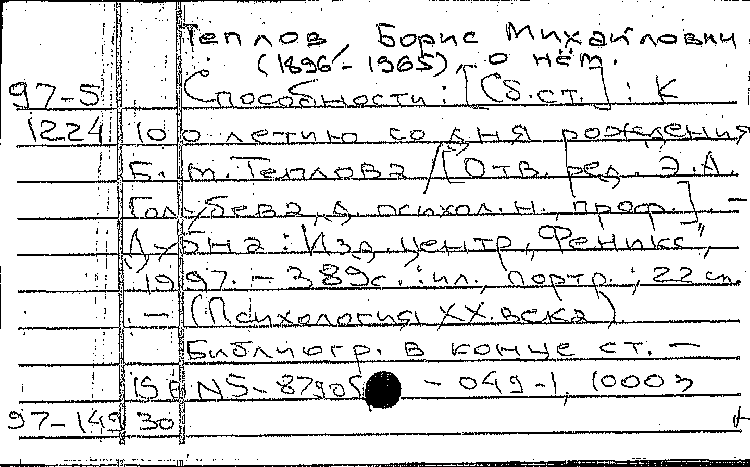 Теплов Борис Михайлович
(1896-1965) о нём.
97-5 Способности: [Сб.ст.] : К
1224 100 летию со дня рождения
Б.М.Теплова / [Отв. ред. Э.А.
Голубева, д. психол.н., проф.]. -
Дубна : Изд.центр "Феникс",
1997. - 389с. : ил., портр. ; 22 см.
. - (Психология XX века)
Библиогр. в конце ст. -
ISBN5-8790 - 049-1, 1000э
97-149 30